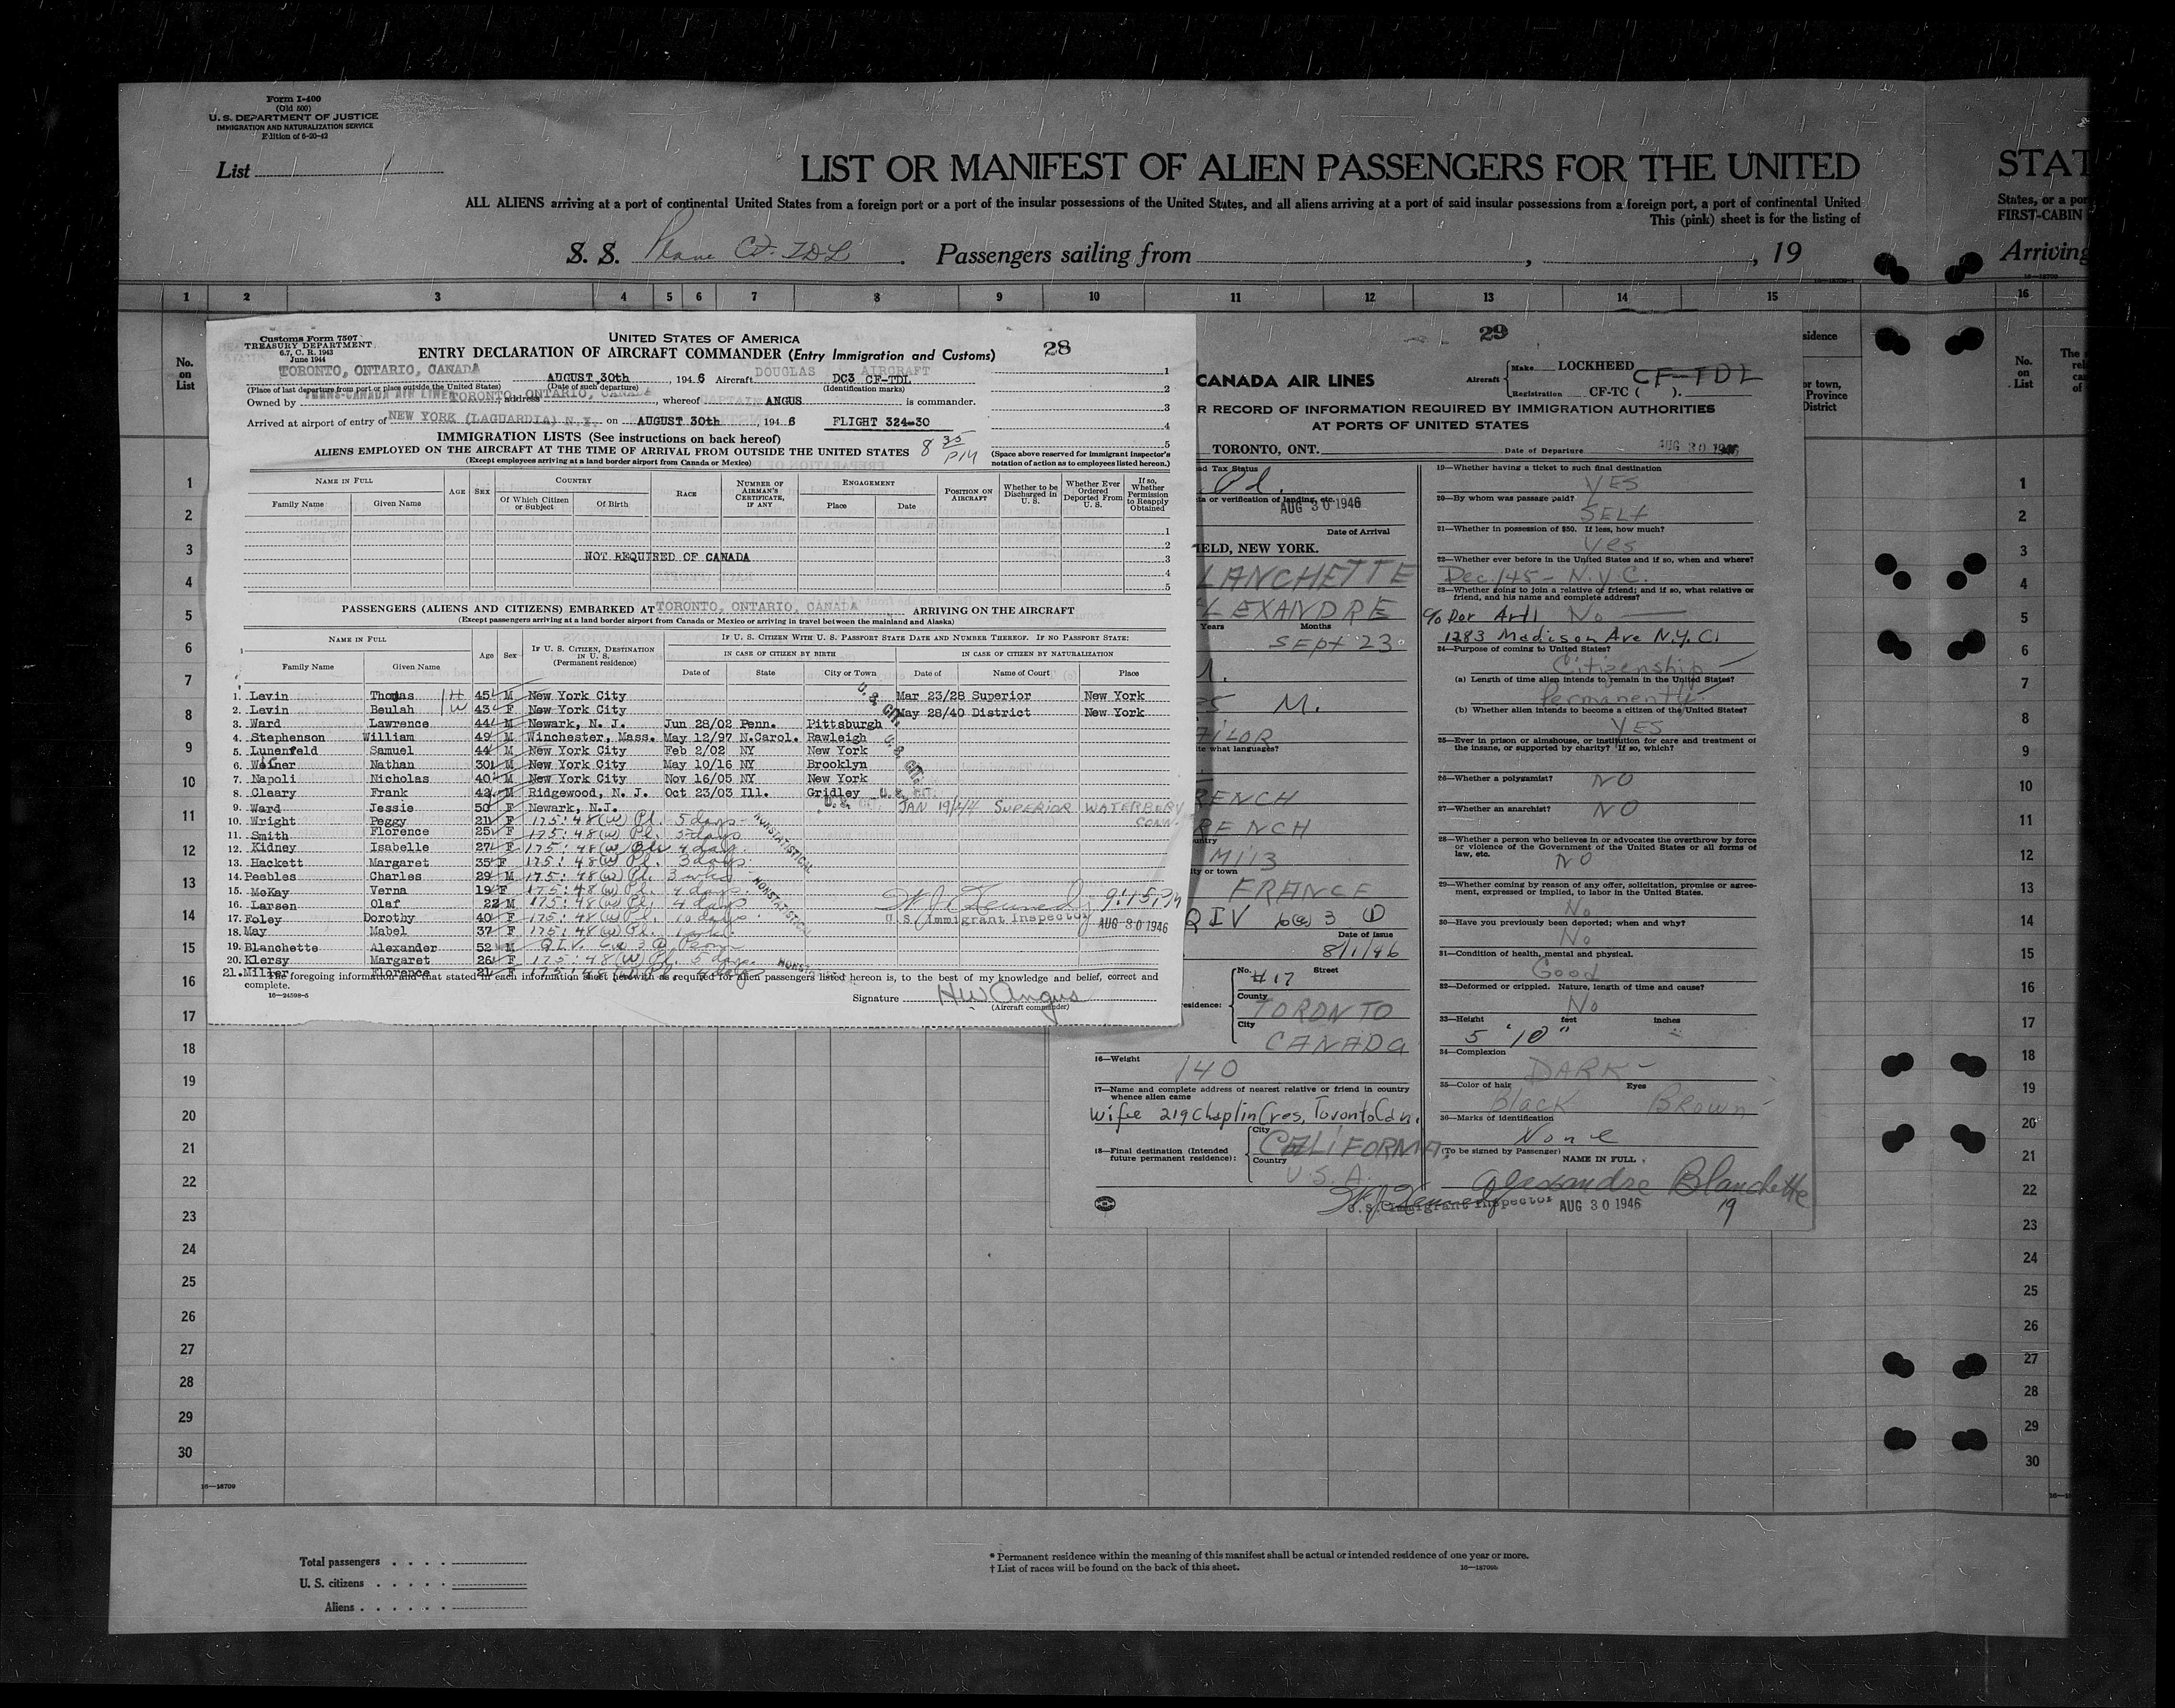 Form I-400
(Old 500)
U. S. DEPARTMENT OF JUSTICE
IMMIGRATION AND NATURALIZATION SERVICE
Edition of 6-20-42
List 1
LIST OR MANIFEST OF ALIEN PASSENGERS FOR THE UNITED
STAT
ALL ALIENS arriving at a port of continental United States from a foreign port or a port of the insular possessions of the United States, and all aliens arriving at a port of said insular possessions from a foreign port, a port of continental United
States, or a por
This (pink) sheet is for the listing of
FIRST-CABIN
S. S. Plane CF-TDL. Passengers sailing from , , 19
Arriving
1 2 3 4 5 6 7 8 9 10 11 12 13 14 15 16
No. on List
Customs Form 7507
TREASURY DEPARTMENT
6.7, C. R. 1943
June 1944
UNITED STATES OF AMERICA
ENTRY DECLARATION OF AIRCRAFT COMMANDER (Entry Immigration and Customs)
28
TORONTO, ONTARIO, CANADA AUGUST 30th, 1946 Aircraft DOUGLAS AIRCRAFT DC3 CF-TDL
(Place of last departure from port or place outside the United States) (Date of such departure) (Identification marks)
Owned by TRANS-CANADA AIR LINES address TORONTO, ONTARIO, CANADA, whereof CAPTAIN ANGUS is commander.
Arrived at airport of entry of NEW YORK (LAGUARDIA) N.Y. on AUGUST 30th, 1946 FLIGHT 324-30
IMMIGRATION LISTS (See instructions on back hereof)
8 35 PM
ALIENS EMPLOYED ON THE AIRCRAFT AT THE TIME OF ARRIVAL FROM OUTSIDE THE UNITED STATES
(Except employees arriving at a land border airport from Canada or Mexico)
(Space above reserved for immigrant inspector's notation of action as to employees listed hereon.)
NAME IN FULL AGE SEX COUNTRY RACE NUMBER OF AIRMAN'S CERTIFICATE, IF ANY ENGAGEMENT POSITION ON AIRCRAFT Whether to be Discharged in U. S. Whether Ever Ordered Deported From U. S. If so, Whether Permission to Reapply Obtained
Family Name Given Name Of Which Citizen or Subject Of Birth Place Date
NOT REQUIRED OF CANADA
PASSENGERS (ALIENS AND CITIZENS) EMBARKED AT TORONTO, ONTARIO, CANADA ARRIVING ON THE AIRCRAFT
(Except passengers arriving at a land border airport from Canada or Mexico or arriving in travel between the mainland and Alaska)
NAME IN FULL Age Sex IF U. S. CITIZEN, DESTINATION IN U. S. (Permanent residence) IF U. S. CITIZEN WITH U. S. PASSPORT STATE DATE AND NUMBER THEREOF. IF NO PASSPORT STATE:
IN CASE OF CITIZEN BY BIRTH IN CASE OF CITIZEN BY NATURALIZATION
Family Name Given Name Date of State City or Town Date of Name of Court Place
1. Levin Thomas H 45 M New York City Mar 23/28 Superior New York
2. Levin Beulah W 43 F New York City May 28/40 District New York
3. Ward Lawrence 44 M Newark, N. J. Jun 28/02 Penn. Pittsburgh
4. Stephenson William 49 M Winchester, Mass. May 12/97 N.Carol. Rawleigh
5. Lunenfeld Samuel 44 M New York City Feb 2/02 NY New York
6. Weiner Nathan 30 M New York City May 10/16 NY Brooklyn
7. Napoli Nicholas 40 M New York City Nov 16/05 NY New York
8. Cleary Frank 42 M Ridgewood, N. J. Oct 23/03 Ill. Gridley
U. S. CIT. U. S. CIT. U. S. CIT.
9. Ward Jessie 50 F Newark, N.J. JAN 19/44 SUPERIOR WATERBURY CONN.
10. Wright Peggy 21 F 175:48(w) Pl. 5 days
11. Smith Florence 25 F 175:48(w) Pl. 5 days
12. Kidney Isabelle 27 F 175:48(w) 4 days
13. Hackett Margaret 35 F 175:48(w) Pl. 3 days
14. Peebles Charles 29 M 175:48(w) Pl. 3 wks
15. McKay Verna 19 F 175:48(w) Pl. 4 days
16. Larsen Olaf 22 M 175:48(w) Pl. 4 days
17. Foley Dorothy 40 F 175:48(w) Pl. 10 days
18. May Mabel 37 F 175:48(w) Pl.
19. Blanchette Alexander 52 M Q.I.V. 6(a) 3 Perm
20. Klersy Margaret 26 F 175:48(w) Pl. 5 days
21. Miller Florence 21 F 175:48(w) Pl.
NONSTATISTICAL NONSTATISTICAL
W. J. Kennedy 9:15 PM
U. S. Immigrant Inspector AUG 30 1946
The foregoing information and that stated in each information sheet herewith as required for alien passengers listed hereon is, to the best of my knowledge and belief, correct and complete.
16-24598-5
Signature HW Angus
(Aircraft commander)
29
CANADA AIR LINES
Aircraft Make LOCKHEED CF-TDL
Registration CF-TC ( ).
R RECORD OF INFORMATION REQUIRED BY IMMIGRATION AUTHORITIES
AT PORTS OF UNITED STATES
TORONTO, ONT. Date of Departure AUG 30 1946
ad Tax Status
Pd.
ta or verification of landing, etc.
AUG 30 1946
Date of Arrival
IELD, NEW YORK.
LANCHETTE
LEXANDRE
Years Months
SEPT 23
M.
AILOR
te what languages?
RENCH
RENCH
untry
ity or town
FRANCE
QIV 6(a) 3
Date of Issue
8/1/46
No. #17 Street
esidence:
County TORONTO
City CANADA
16—Weight 140
17—Name and complete address of nearest relative or friend in country whence alien came
Wife 219 Chaplin Cres, Toronto Can.
18—Final destination (Intended future permanent residence): City CALIFORNIA
Country U.S.A.
19—Whether having a ticket to such final destination
YES
20—By whom was passage paid?
SELF
21—Whether in possession of $50. If less, how much?
yes
22—Whether ever before in the United States and if so, when and where?
Dec. 145 - N.Y.C.
23—Whether going to join a relative or friend; and if so, what relative or friend, and his name and complete address?
No
1283 Madison Ave N.Y.C.
24—Purpose of coming to United States?
Citizenship
(a) Length of time alien intends to remain in the United States?
Permanently
(b) Whether alien intends to become a citizen of the United States?
YES
25—Ever in prison or almshouse, or institution for care and treatment of the insane, or supported by charity? If so, which?
26—Whether a polygamist? NO
27—Whether an anarchist? NO
28—Whether a person who believes in or advocates the overthrow by force or violence of the Government of the United States or all forms of law, etc.
NO
29—Whether coming by reason of any offer, solicitation, promise or agreement, expressed or implied, to labor in the United States.
No
30—Have you previously been deported; when and why?
No
31—Condition of health, mental and physical.
Good
32—Deformed or crippled. Nature, length of time and cause?
No
33—Height feet inches
5 '10"
34—Complexion
DARK
35—Color of hair Eyes
Black Brown
36—Marks of identification
None
(To be signed by Passenger)
NAME IN FULL
Alexandre Blanchette
19
W. J. Kennedy
U. S. Immigrant Inspector AUG 30 1946
1
2
3
4
5
6
7
8
9
10
11
12
13
14
15
16
17
18
19
20
21
22
23
24
25
26
27
28
29
30
16—18709
Total passengers
U. S. citizens
Aliens
* Permanent residence within the meaning of this manifest shall be actual or intended residence of one year or more.
† List of races will be found on the back of this sheet.